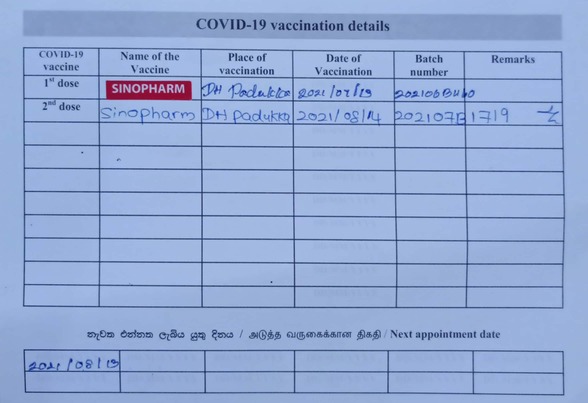 COVID-19 vaccination details
COVID-19 vaccine Name of the Vaccine Place of vaccination Date of Vaccination Batch number Remarks
1st dose SINOPHARM DH Padukka 2021/07/13
2nd dose Sinopharm DH Padukka 2021/08/14 202107B1719
නැවත එන්නත ලැබිය යුතු දිනය / அடுத்த வருகைக்கான திகதி / Next appointment date
2021/08/13